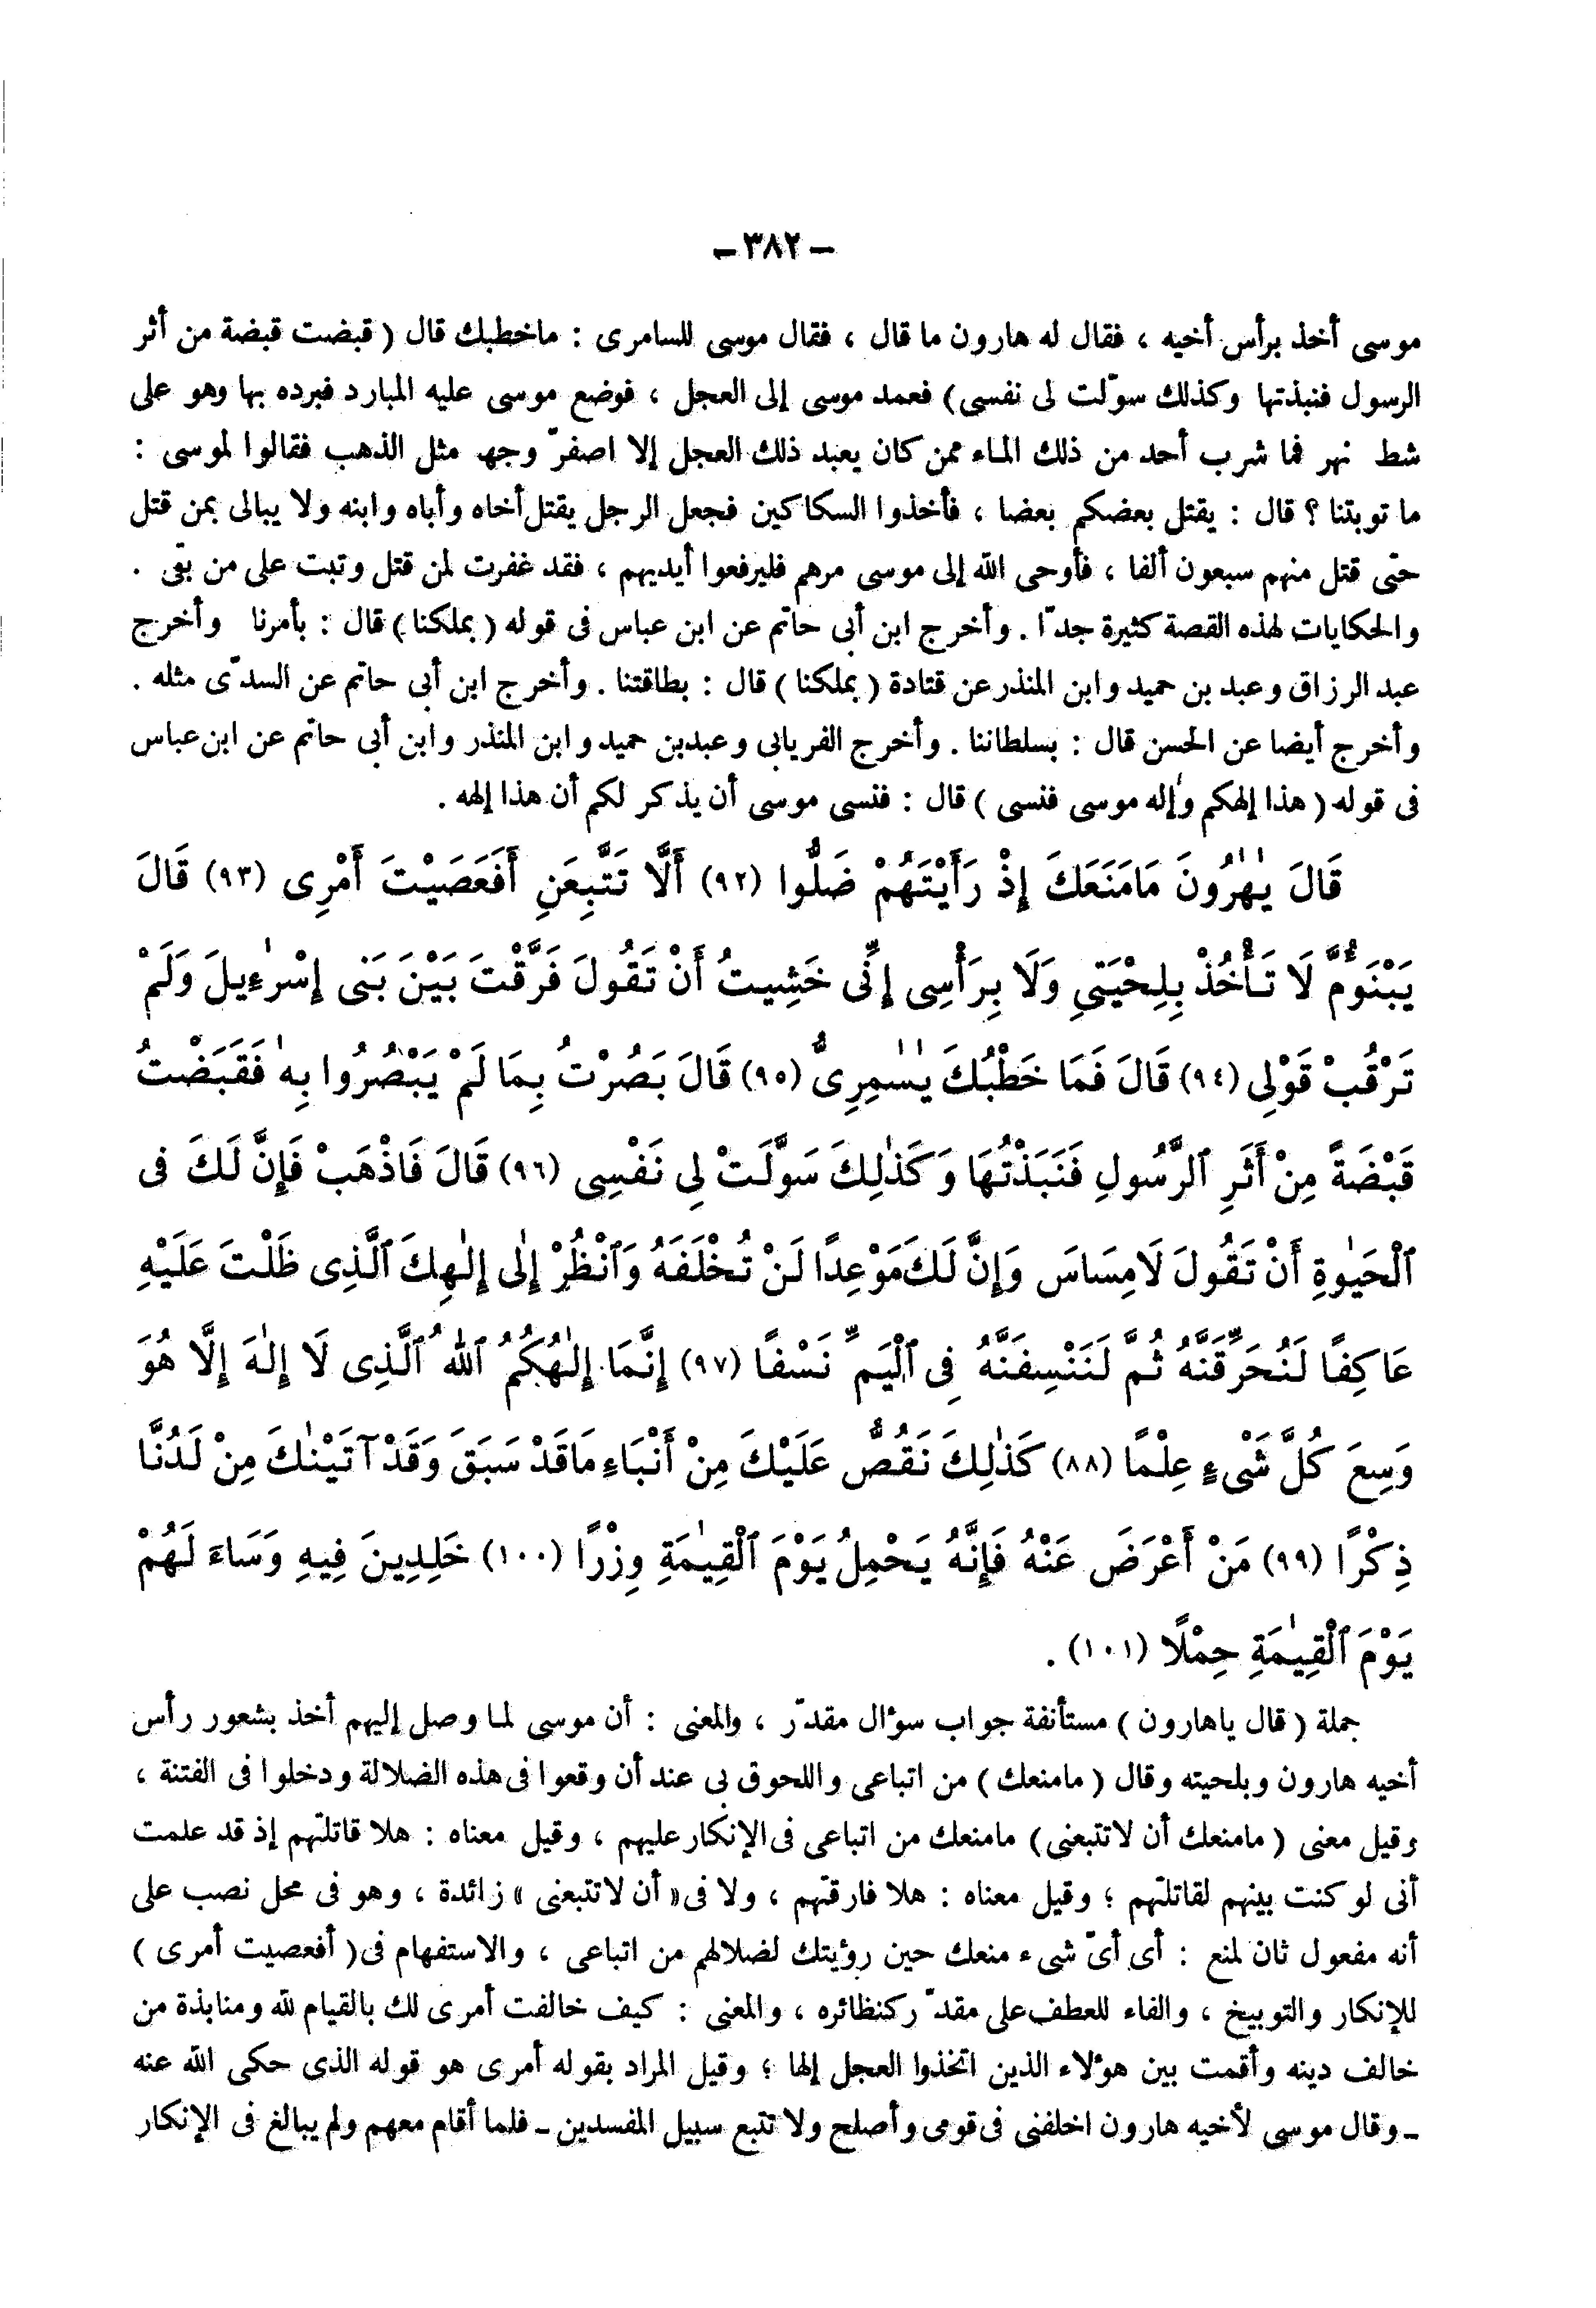 – ٣٨٢ –
موسى أخذ برأس أخيه ، فقال له هارون ما قال ، فقال موسى للسامرى : ماخطبك قال ( قبضت قبضة من أثر
الرسول فنبذتها وكذلك سوّلت لى نفسى ) فعمد موسى إلى العجل ، فوضع موسى عليه المبارد فبرده بها وهو على
شط نهر فما شرب أحد من ذلك الماء ممن كان يعبد ذلك العجل إلا اصفرّ وجهه مثل الذهب فقالوا لموسى :
ما توبتنا ؟ قال : يقتل بعضكم بعضا ، فأخذوا السكاكين فجعل الرجل يقتل أخاه وأباه وابنه ولا يبالى بمن قتل
حتى قتل منهم سبعون ألفا ، فأوحى الله إلى موسى مرهم فليرفعوا أيديهم ، فقد غفرت لمن قتل وتبت على من بقى .
والحكايات لهذه القصة كثيرة جدّا . وأخرج ابن أبى حاتم عن ابن عباس فى قوله ( بملكنا ) قال : بأمرنا وأخرج
عبد الرزاق وعبد بن حميد وابن المنذر عن قتادة ( بملكنا ) قال : بطاقتنا . وأخرج ابن أبى حاتم عن السدّى مثله .
وأخرج أيضا عن الحسن قال : بسلطاننا . وأخرج الفريابى وعبد بن حميد وابن المنذر وابن أبى حاتم عن ابن عباس
فى قوله ( هذا إلهكم وإله موسى فنسى ) قال : فنسى موسى أن يذكر لكم أن هذا إلهه .
قَالَ يٰهٰرُونَ مَامَنَعَكَ إِذْ رَأَيْتَهُمْ ضَلُّوا (٩٢) أَلَّا تَتَّبِعَنِ أَفَعَصَيْتَ أَمْرِى (٩٣) قَالَ
يَبْنَؤُمَّ لَا تَأْخُذْ بِلِحْيَتِي وَلَا بِرَأْسِى إِنِّى خَشِيتُ أَنْ تَقُولَ فَرَّقْتَ بَيْنَ بَنِى إِسْرٰءِيلَ وَلَمْ
تَرْقُبْ قَوْلِى (٩٤) قَالَ فَمَا خَطْبُكَ يٰسٰمِرِىُّ (٩٥) قَالَ بَصُرْتُ بِمَا لَمْ يَبْصُرُوا بِهِ فَقَبَضْتُ
قَبْضَةً مِنْ أَثَرِ ٱلرَّسُولِ فَنَبَذْتُهَا وَكَذٰلِكَ سَوَّلَتْ لِى نَفْسِى (٩٦) قَالَ فَاذْهَبْ فَإِنَّ لَكَ فِى
ٱلْحَيٰوةِ أَنْ تَقُولَ لَامِسَاسَ وَإِنَّ لَكَ مَوْعِدًا لَنْ تُخْلَفَهُ وَٱنْظُرْ إِلٰى إِلٰهِكَ ٱلَّذِى ظَلْتَ عَلَيْهِ
عَاكِفًا لَنُحَرِّقَنَّهُ ثُمَّ لَنَنْسِفَنَّهُ فِى ٱلْيَمِّ نَسْفًا (٩٧) إِنَّمَا إِلٰهُكُمُ ٱللهُ ٱلَّذِى لَا إِلٰهَ إِلَّا هُوَ
وَسِعَ كُلَّ شَىْءٍ عِلْمًا (٨٨) كَذٰلِكَ نَقُصُّ عَلَيْكَ مِنْ أَنْبَاءِ مَاقَدْ سَبَقَ وَقَدْ آتَيْنٰكَ مِنْ لَدُنَّا
ذِكْرًا (٩٩) مَنْ أَعْرَضَ عَنْهُ فَإِنَّهُ يَحْمِلُ يَوْمَ ٱلْقِيٰمَةِ وِزْرًا (١٠٠) خٰلِدِينَ فِيهِ وَسَاءَ لَهُمْ
يَوْمَ ٱلْقِيٰمَةِ حِمْلًا (١٠١) .
جملة ( قال ياهارون ) مستأنفة جواب سؤال مقدّر ، والمعنى : أن موسى لما وصل إليهم أخذ بشعور رأس
أخيه هارون وبلحيته وقال ( مامنعك ) من اتباعى واللحوق بى عند أن وقعوا فى هذه الضلالة ودخلوا فى الفتنة ،
وقيل معنى ( مامنعك أن لاتتبعنى ) مامنعك من اتباعى فى الإنكار عليهم ، وقيل معناه : هلا قاتلتهم إذ قد علمت
أنى لو كنت بينهم لقاتلتهم ؛ وقيل معناه : هلا فارقتهم ، ولا فى « أن لاتتبعنى » زائدة ، وهو فى محل نصب على
أنه مفعول ثان لمنع : أى أىّ شىء منعك حين رؤيتك لضلالهم من اتباعى ، والاستفهام فى ( أفعصيت أمرى )
للإنكار والتوبيخ ، والفاء للعطف على مقدّر كنظائره ، والمعنى : كيف خالفت أمرى لك بالقيام لله ومنابذة من
خالف دينه وأقمت بين هؤلاء الذين اتخذوا العجل إلها ؛ وقيل المراد بقوله أمرى هو قوله الذى حكى الله عنه
ـ وقال موسى لأخيه هارون اخلفنى فى قومى وأصلح ولا تتبع سبيل المفسدين ـ فلما أقام معهم ولم يبالغ فى الإنكار